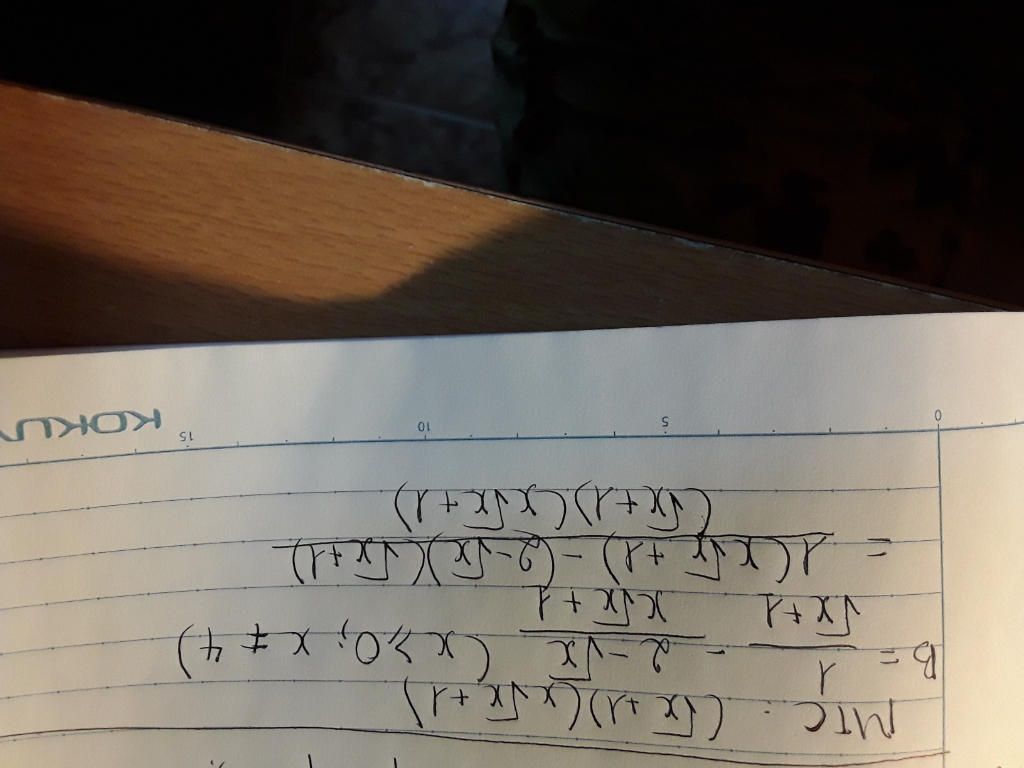 MTC : (√x+1)(x√x+1)
B = 1/(√x+1) - (2-√x)/(x√x+1) (x ≥ 0; x ≠ 4)
= 1(x√x+1) - (2-√x)(√x+1)
(√x+1)(x√x+1)
0 5 10 15
KOKU